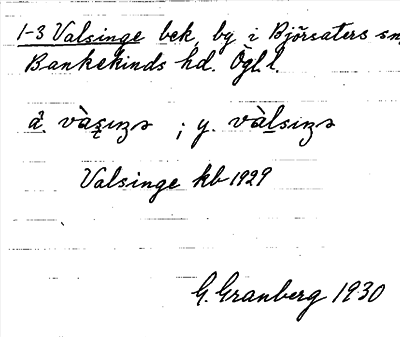 1-3 Valsinge bek, by i Björsäters sn,
Bankekinds hd. Ögl. l.
å. ; y.
Valsinge kb 1929
G. Granberg 1930